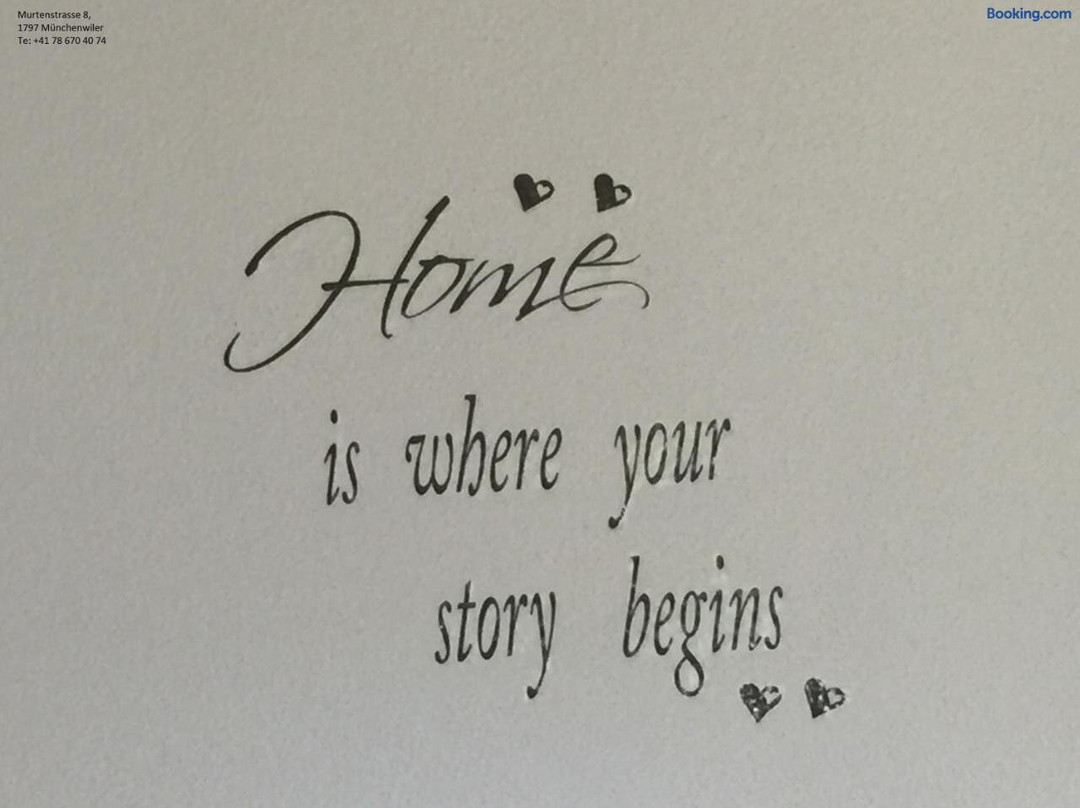 Murtenstrasse 8,
1797 Münchenwiler
Te: +41 78 670 40 74
Booking.com
Home
is where your
story begins